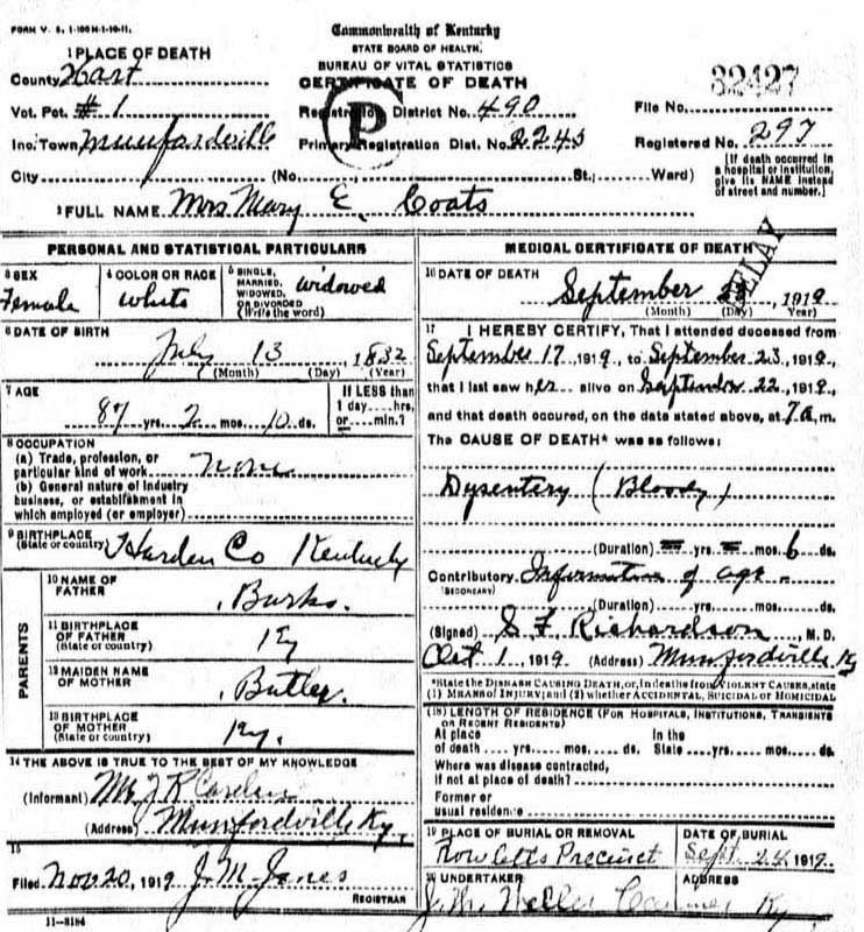 FORM V. S. 1-100M-1-10-11.
Commonwealth of Kentucky
STATE BOARD OF HEALTH.
BUREAU OF VITAL STATISTICS
CERTIFICATE OF DEATH
1 PLACE OF DEATH
County Hart
Vot. Pct. # 1
Inc. Town Munfordville
City (No. St.; Ward)
Registration District No. 490
Primary Registration Dist. No. 2245
P
32427
File No.
Registered No. 297
[If death occurred in
a hospital or institution,
give its NAME instead
of street and number.]
2 FULL NAME Mrs Mary E. Coats
PERSONAL AND STATISTICAL PARTICULARS
3 SEX
Female
4 COLOR OR RACE
white
5 SINGLE,
MARRIED,
WIDOWED,
OR DIVORCED
(Write the word)
widowed
6 DATE OF BIRTH
July 13 1832
(Month) (Day) (Year)
7 AGE
87 yrs. 2 mos. 10 ds.
If LESS than
1 day....hrs.
or....min.?
8 OCCUPATION
(a) Trade, profession, or
particular kind of work None
(b) General nature of industry
business, or establishment in
which employed (or employer)
9 BIRTHPLACE
(State or country) Harden Co Kentucky
PARENTS
10 NAME OF
FATHER
, Burks.
11 BIRTHPLACE
OF FATHER
(State or country)
Ky
12 MAIDEN NAME
OF MOTHER
, Butler.
13 BIRTHPLACE
OF MOTHER
(State or country)
Ky.
14 THE ABOVE IS TRUE TO THE BEST OF MY KNOWLEDGE
(Informant) J R
(Address) Munfordville Ky,
15
Filed Nov 20, 1919 J. M. Janes
REGISTRAR
11-8184
MEDICAL CERTIFICATE OF DEATH
DELAY
16 DATE OF DEATH
September 23, 1919
(Month) (Day) Year)
17 I HEREBY CERTIFY, That I attended deceased from
September 17, 1919, to September 23, 1919,
that I last saw her alive on September 22, 1919,
and that death occured, on the date stated above, at 7 a, m.
The CAUSE OF DEATH* was as follows:
Dysentery (Bloody)
(Duration) yrs. mos. 6 ds.
Contributory of age
(SECONDARY)
(Duration) yrs. mos. ds.
(Signed) S. F. Richardson, M. D.
Oct 1, 1919. (Address) Munfordville Ky
*State the DISEASE CAUSING DEATH, or, in deaths from VIOLENT CAUSES, state
(1) MEANS of INJURY; and (2) whether ACCIDENTAL, SUICIDAL or HOMICIDAL
(18) LENGTH OF RESIDENCE (FOR HOSPITALS, INSTITUTIONS, TRANSIENTS
OR RECENT RESIDENTS)
At place In the
of death .... yrs. .... mos. .... ds. State .... yrs. .... mos. .... ds.
Where was disease contracted,
if not at place of death?
Former or
usual residence
19 PLACE OF BURIAL OR REMOVAL
Rowletts Precinct
DATE OF BURIAL
Sept. 24, 1919.
20 UNDERTAKER
ADDRESS
Ky.